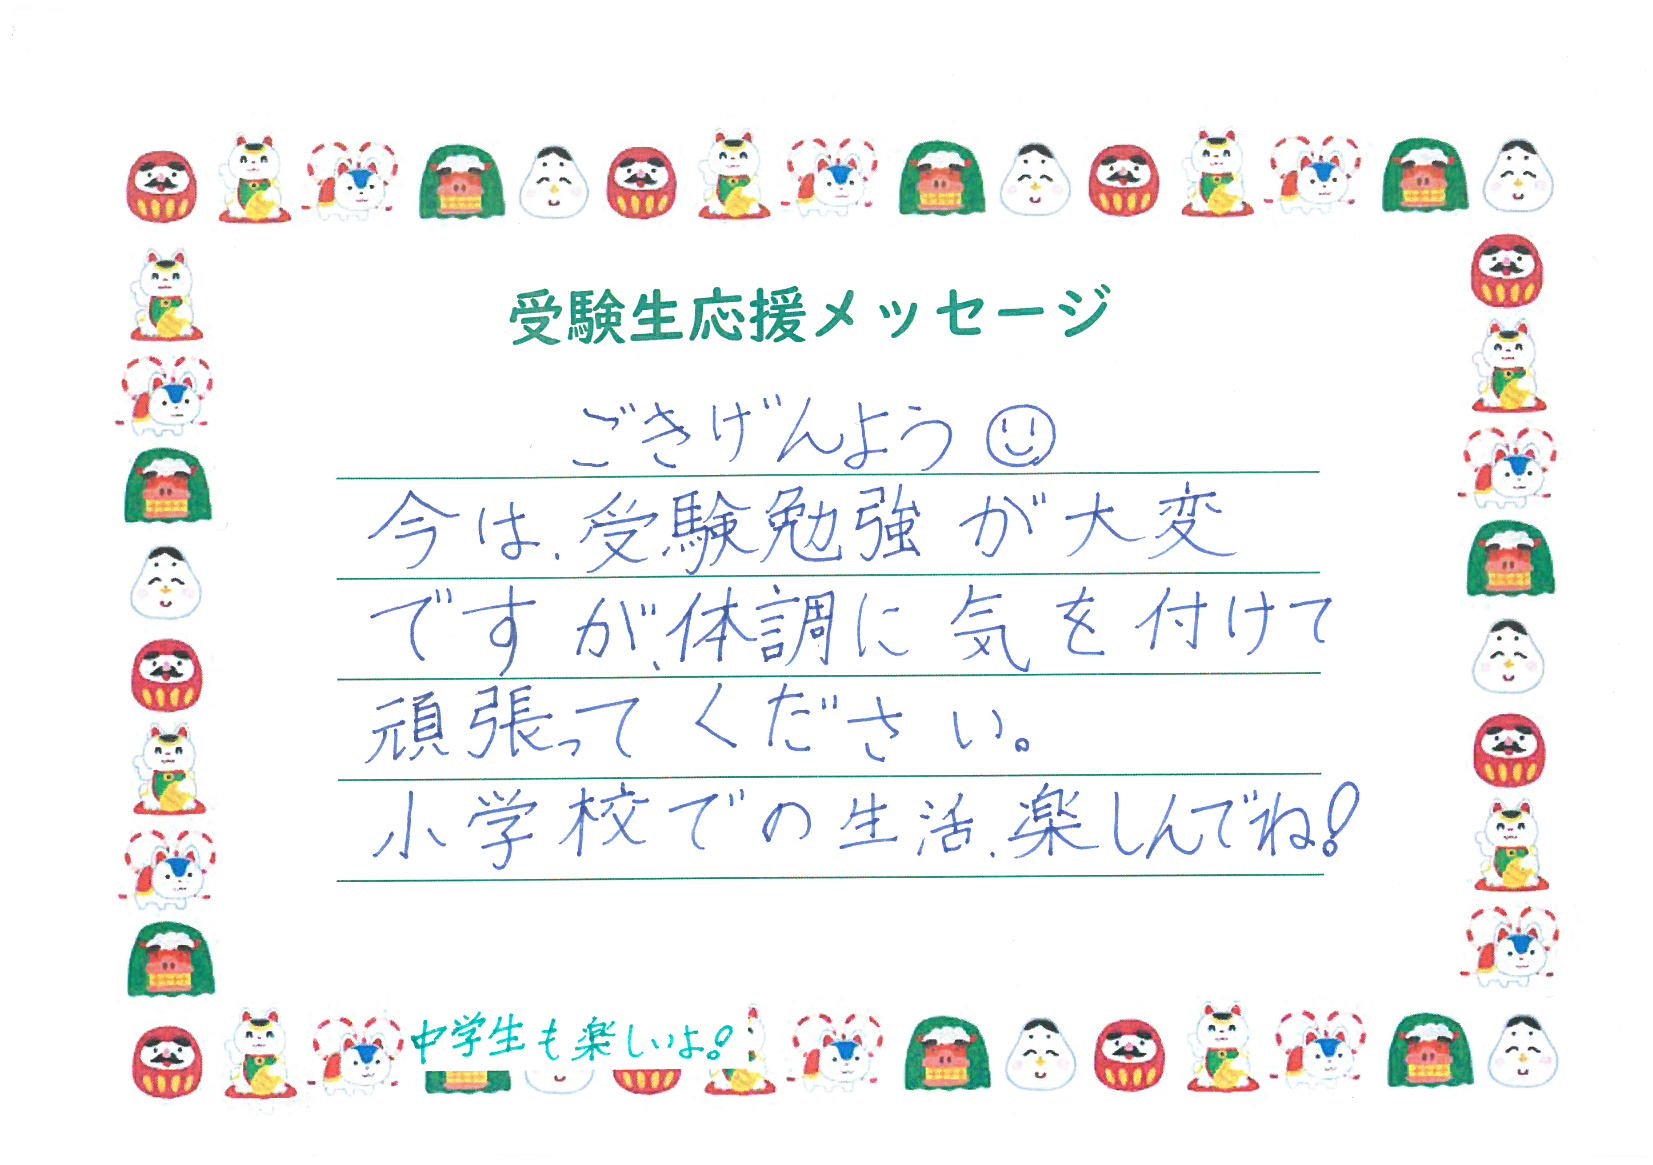 受験生応援メッセージ
ごきげんよう
今は、受験勉強が大変
ですが、体調に気を付けて
頑張ってください。
小学校での生活、楽しんでね!
中学生も楽しいよ!